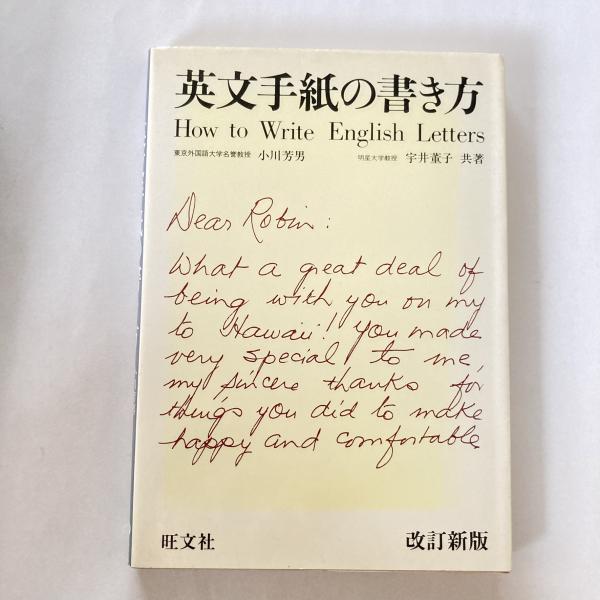 英文手紙の書き方
How to Write English Letters
東京外国語大学名誉教授 小川芳男 明星大学教授 宇井菫子 共著
Dear Robin:
What a great deal of
being with you on my
to Hawaii! You made
very special to me,
my sincere thanks for
things you did to make
happy and comfortable
旺文社 改訂新版